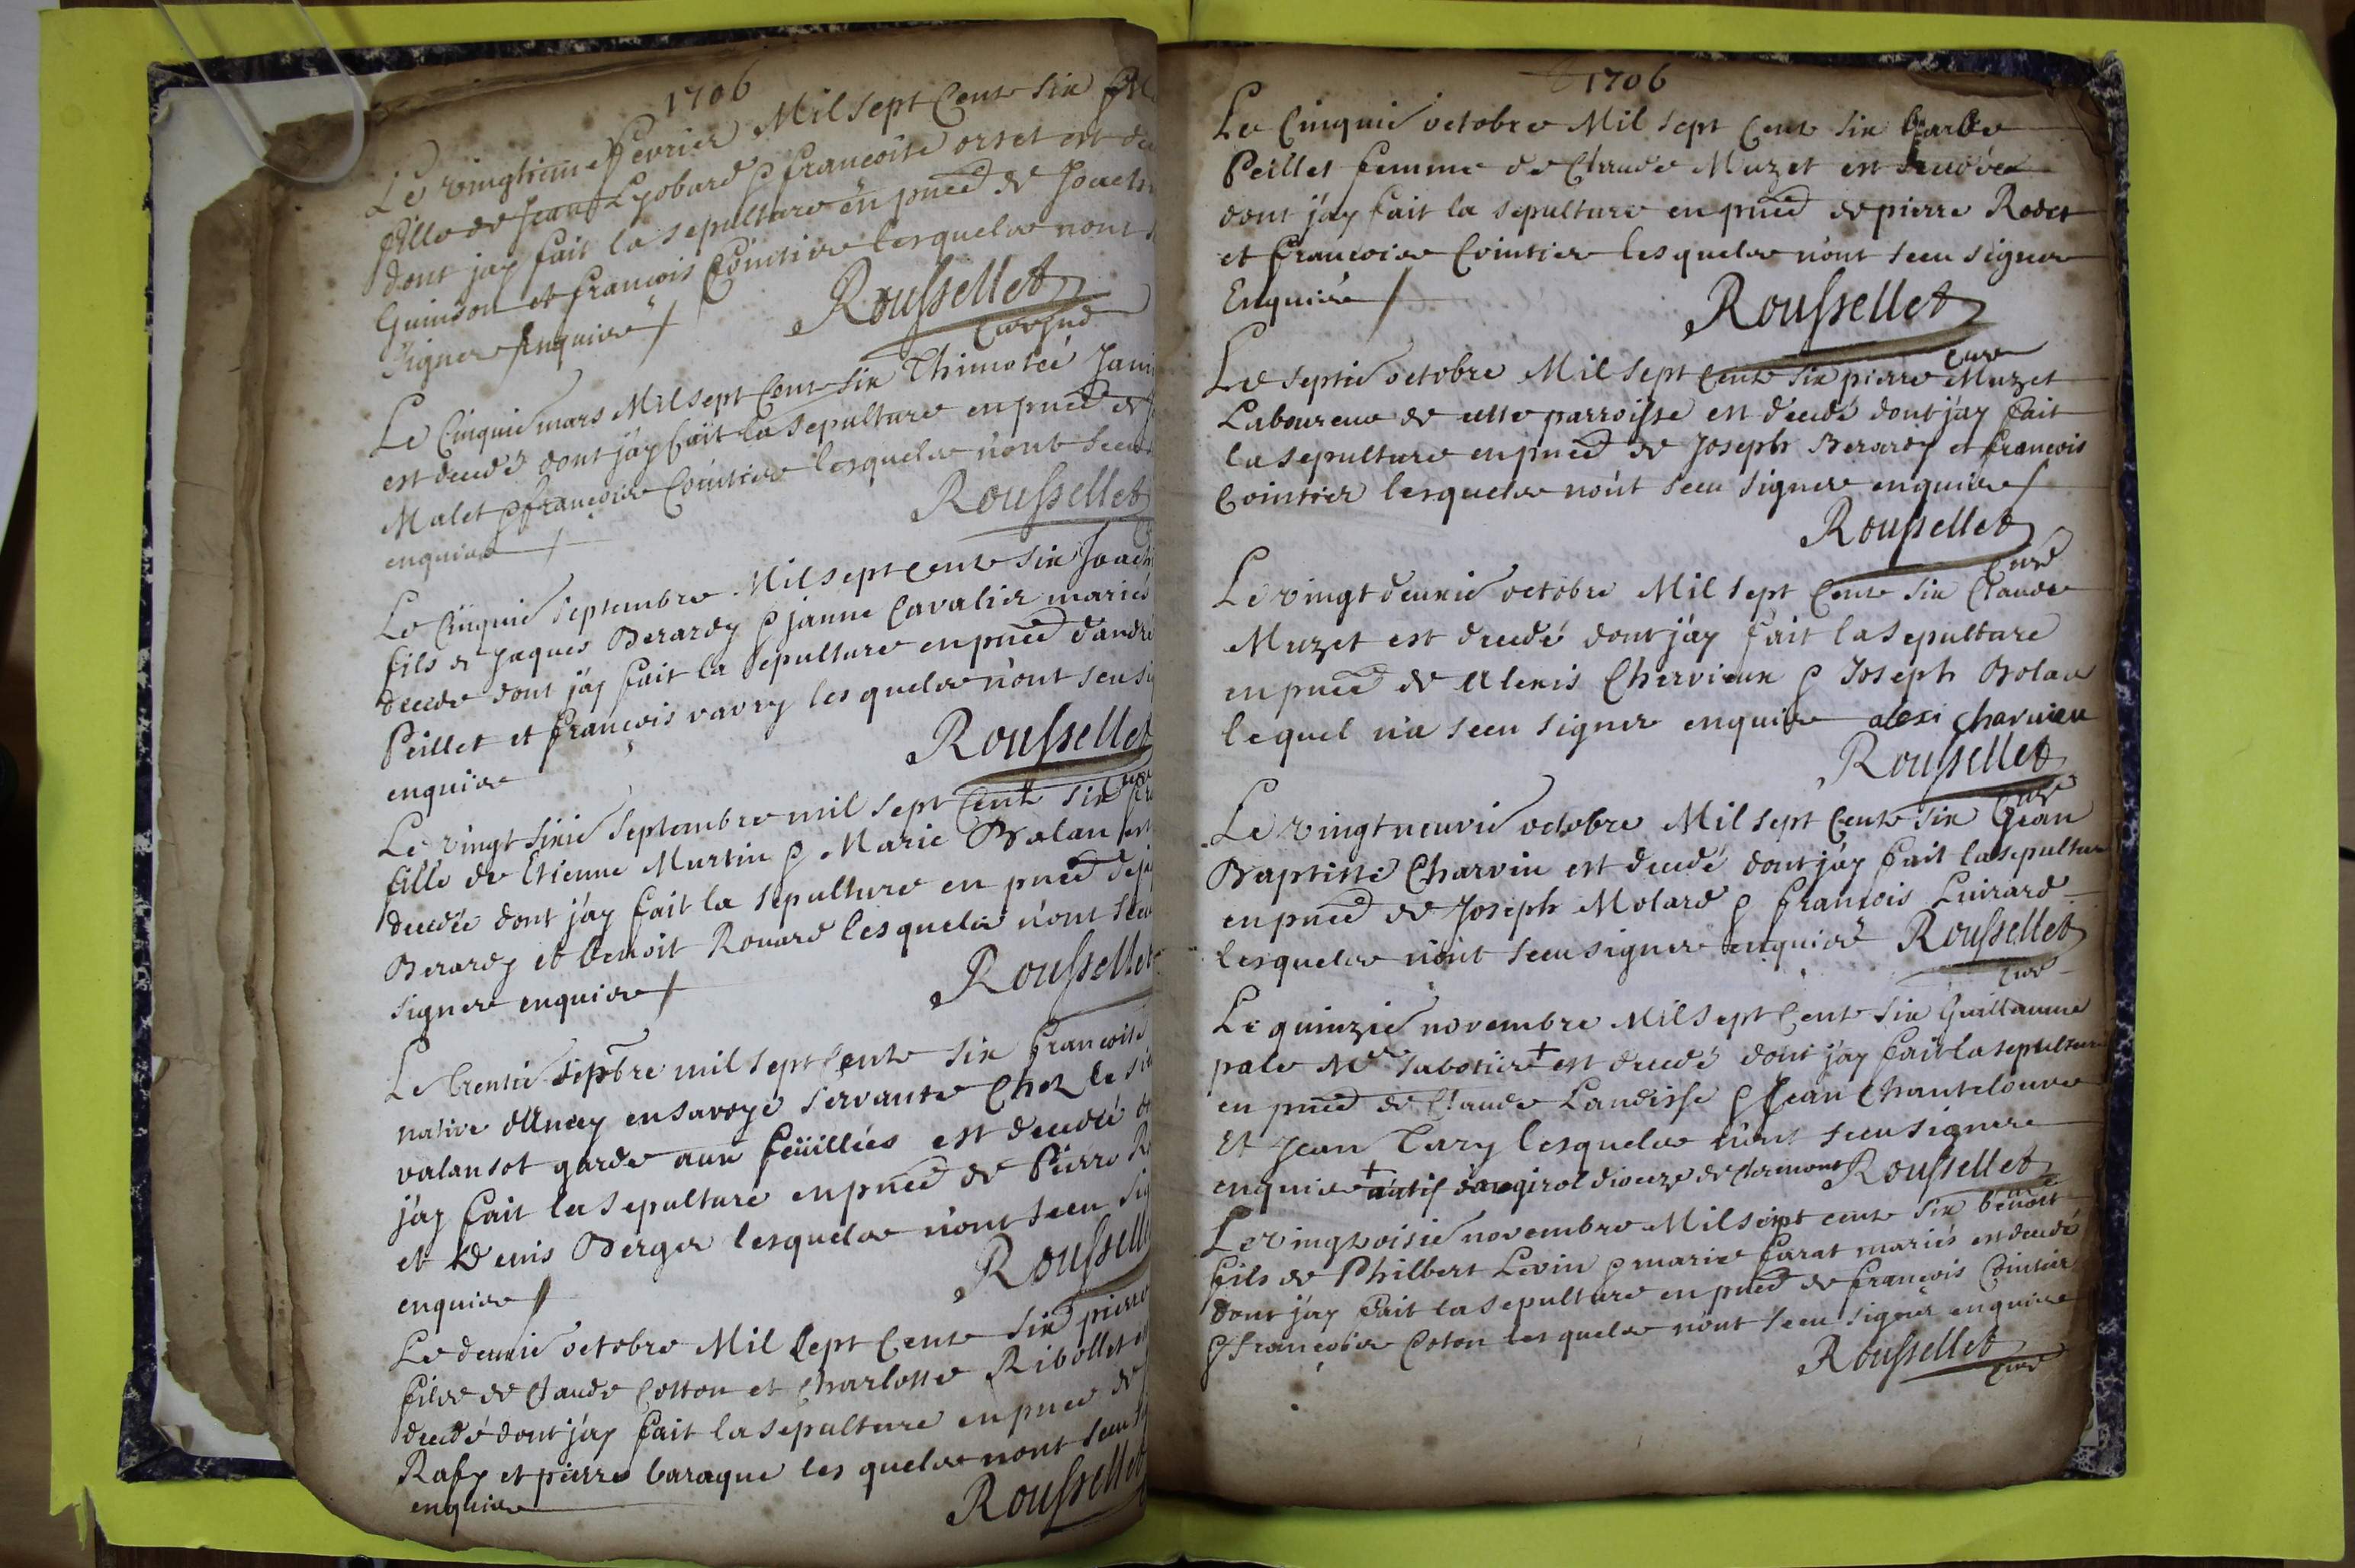 1706
Le vingtieme fevrier Mil sept Cent six
fille de Jean Lyobard & francoise orset est
dont jay fait la sepulture en pnce de
Guinson et francois Cointier lesquels nont
signer Enquis
Rousselet
Curé
Le Cinquie mars Mil sept Cent six Thimoteé
est decedé dont j'ay fait la sepulture en pnce de
Malet & francois Cointier lesquels n'ont sceu
enquis
Rousselet
Le Cinquie septembre Mil sept cent six
fils de Jaques Berardy & janne Cavalier mariés
decede dont j'ay fait la sepulture en pnce d'andré
Peillet et francois vavry lesquels n'ont sceu
enquis
Rousselet
Le vingt sixie septembre mil sept Cent six
fille de Etienne Murtin & Marie Bolan est
decedée dont j'ay fait la sepulture en pnce de
Berardy et benoit Rouard lesquels n'ont sceu
signer enquis
Rousselet
Le trentie sepbre mil sept Cent six francoise
native d'Ancy en savoye servante Chez le
valansot garde aux feüillées est decedée
j'ay fait la sepulture en pnce de Pierre
et Denis Berger lesquels n'ont sceu
enquis
Rousselet
Le deuxie octobre Mil sept Cent six pierre
fils de Claude Cotton et Charlotte Ribollet
decedé dont j'ay fait la sepulture en pnce de
Rafy et pierre baraque lesquels n'ont sceu
enquis
Rousselet
1706
Le Cinquie octobre Mil sept Cent six
Peillet femme de Claude Muzet est decedée
dont j'ay fait la sepulture en pnce de pierre Rodet
et francois Cointier lesquels n'ont sceu signer
Enquis
Rousselet
Curé
Le septie octobre Mil sept Cent six pierre Muzet
Laboureur de cette parroisse est decedé dont j'ay fait
la sepulture en pnce de Joseph Berardy et francois
Cointier lesquels n'ont sceu signer enquis
Rousselet
Curé
Le vingt deuxie octobre Mil sept Cent six Claude
Muzet est decedé dont j'ay fait la sepulture
en pnce de Alexis Chervieux & Joseph Bolan
lequel n'a sceu signer enquis alexi charvieu
Rousselet
Curé
Le vingt neuvie octobre Mil sept Cent six Jean
Baptiste Charvin est decedé dont j'ay fait la sepulture
en pnce de Joseph Molard & francois Luirard
lesquels n'ont sceu signer enquis Rousselet
Curé
Le quinzie novembre Mil sept Cent six Guillaume
pale Mre sabotier + est decedé dont j'ay fait la sepulture
en pnce de Claude Landisse & Jean Chantelouve
Et Jean Tary lesquels n'ont sceu signer
enquis + natif d'augirol dioceze de clermont Rousselet
Le vingtroisie novembre Mil sept cent six benoit
fils de Philbert Levin & marie farat mariés est decedé
dont j'ay fait la sepulture en pnce de francois Cointier
& francois Coton lesquels n'ont sceu signer enquis
Rousselet
Curé